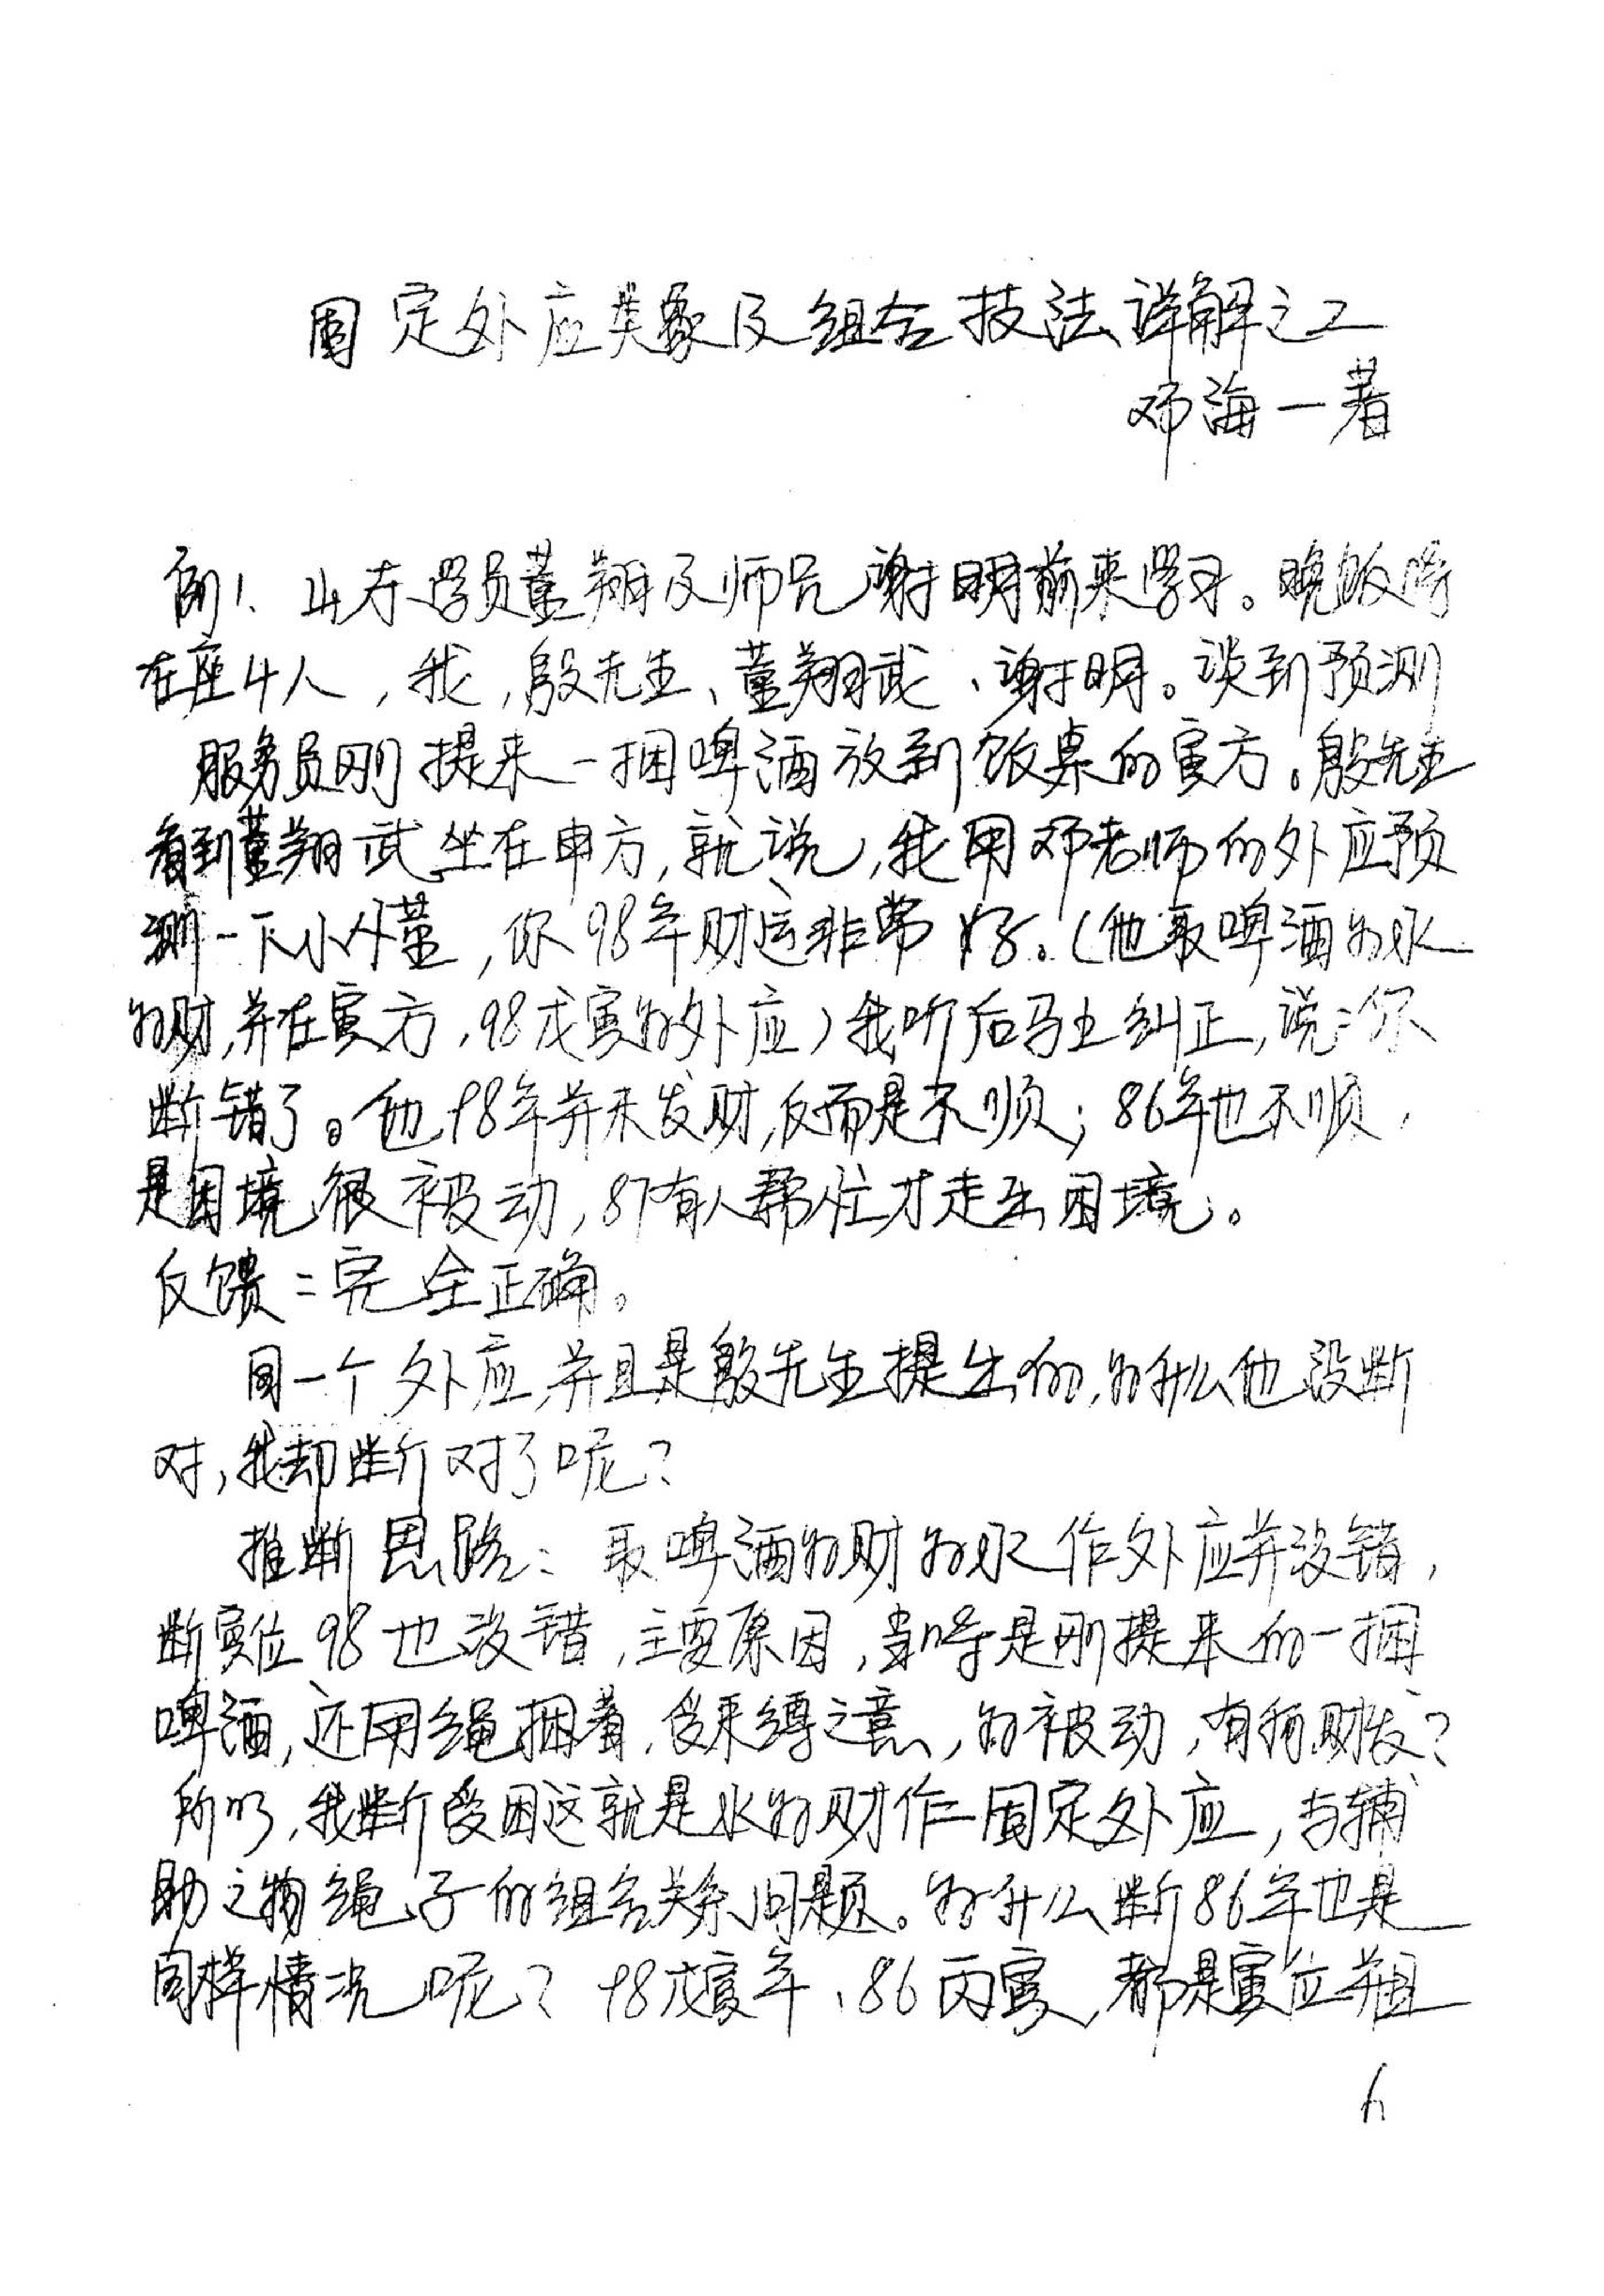 固定外应类象及组合技法详解之二
邓海一著
例1、山东学员董翔及师兄谢明前来学习。晚饭时
在座4人，我，殷先生、董翔武、谢明。谈到预测
服务员刚提来一捆啤酒放到饭桌的寅方。殷先生
看到董翔武坐在申方，就说，我用邓老师的外应预
测一下小小董，你98年财运非常好。（他取啤酒为水
为财，并在寅方，98戊寅为外应）我听后马上纠正，说：你
断错了。他98年并未发财，反而是不顺；86年也不顺，
是困境很被动，87有人帮忙才走出困境。
反馈：完全正确。
同一个外应，并且是殷先生提出的，为什么他没断
对，我却断对了呢？
推断思路：取啤酒为财为水作外应并没错，
断寅位98也没错，主要原因，当时是刚提来的一捆
啤酒，还用绳捆着，受束缚之意，为被动，有何财发？
所以，我断受困这就是水为财作一固定外应，与辅
助之物绳子的组合关系问题。为什么断86年也是
同样情况呢？98戊寅年、86丙寅，都是寅位并且
6